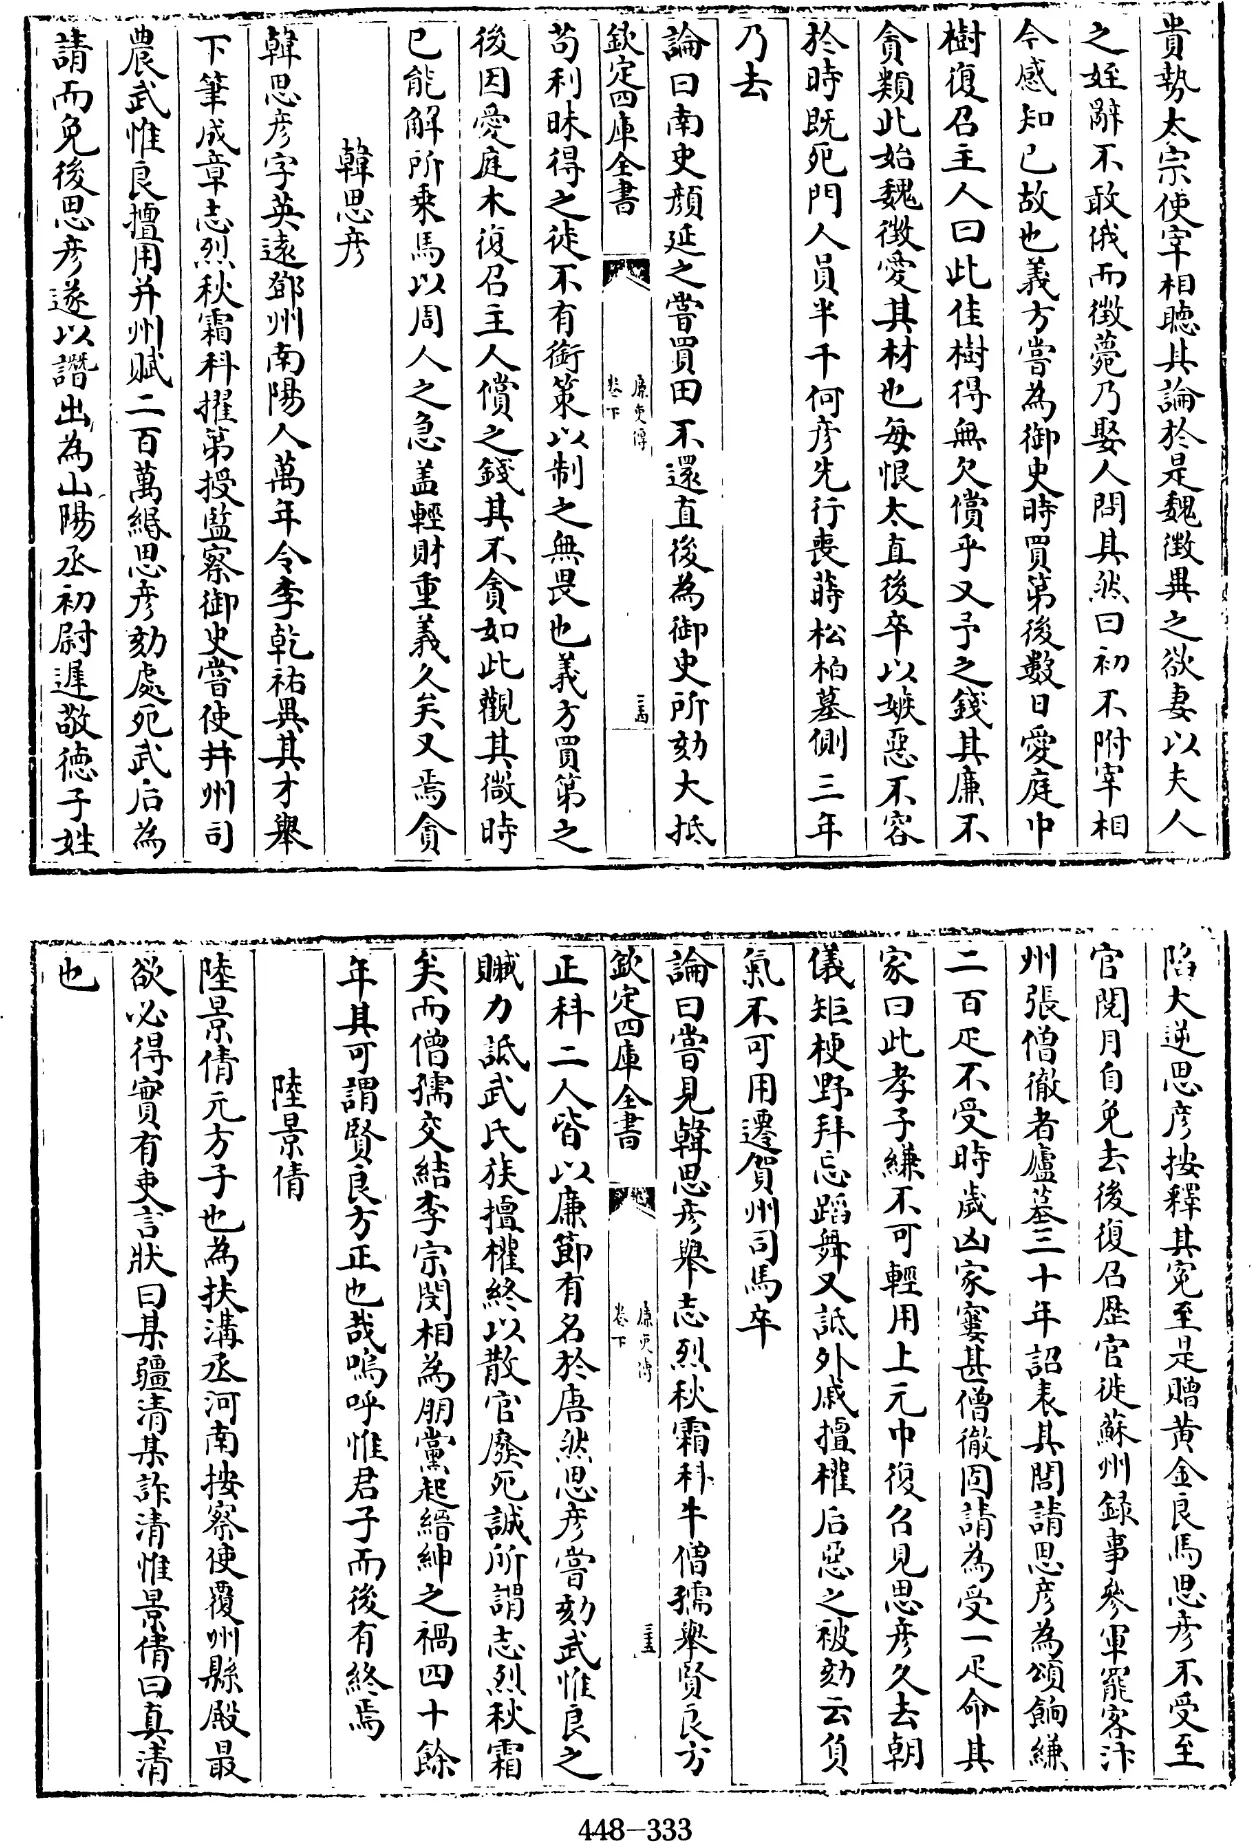 貴勢太宗使宰相聽其論於是魏徵異之欲妻以夫人
之姪辭不敢俄而徵薨乃娶人問其然曰初不附宰相
今感知已故也義方嘗為御史時買第後數日愛庭中
樹復召主人曰此佳樹得無欠償乎又予之錢其廉不
貪類此始魏徵愛其材也每恨太直後卒以嫉惡不容
於時既死門人員半千何彦先行喪蒔松柏墓側三年
乃去
論曰南史顔延之嘗買田不還直後為御史所劾大抵
欽定四庫全書
廉吏傳
卷下
三十四
苟利昧得之徒不有銜策以制之無畏也義方買第之
後因愛庭木復召主人償之錢其不貪如此觀其微時
已能解所乘馬以周人之急盖輕財重義久矣又焉貪
韓思彦
韓思彦字英遠鄧州南陽人萬年令李乾祐異其才舉
下筆成章志烈秋霜科擢第授監察御史嘗使并州司
農武惟良擅用并州賦二百萬緡思彦劾處死武后為
請而免後思彦遂以譖出為山陽丞初尉遲敬徳子姓
陷大逆思彦按釋其寃至是贈黄金良馬思彦不受至
官閱月自免去後復召歴官徙蘇州録事參軍罷客汴
州張僧徹者廬墓三十年詔表其閭請思彦為頌餉縑
二百疋不受時歲凶家窶甚僧徹固請為受一疋命其
家曰此孝子縑不可輕用上元中復召見思彦久去朝
儀矩梗野拜忘蹈舞又詆外戚擅權后惡之被劾云負
氣不可用遷賀州司馬卒
論曰嘗見韓思彦舉志烈秋霜科牛僧孺舉賢良方
欽定四庫全書
廉吏傳
卷下
三十五
正科二人皆以廉節有名於唐然思彦嘗劾武惟良之
贓力詆武氏族擅權終以散官廢死誠所謂志烈秋霜
矣而僧孺交結李宗閔相為朋黨起縉紳之禍四十餘
年其可謂賢良方正也哉嗚呼惟君子而後有終焉
陸景倩
陸景倩元方子也為扶溝丞河南按察使覆州縣殿最
欲必得實有吏言狀曰某彊清某詐清惟景倩曰真清
也
448-333